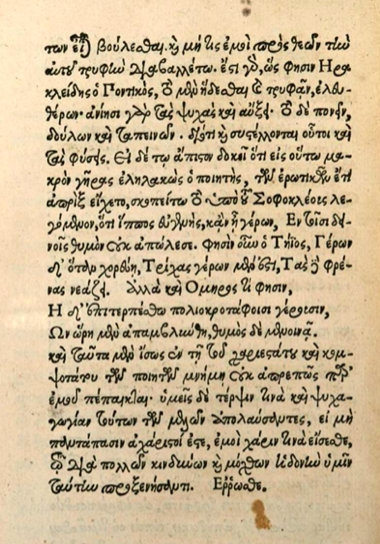 των εἶ) βούλεσθαι. καὶ μή τις ἐμοὶ πρὸς θεῶν τὴν
αὐτοῦ τρυφὴν διαβαλλέτω. ἔστι γὸ, ὥς φησιν Ηρα
κλείδης ὁ Ποντικὸς, τὸ μὲν ἥδεσθαι καὶ τρυφᾶν, ἐλευ
θέρων· ἀνίησι γὰρ τὰς ψυχὰς καὶ αὔξει. τὸ δὲ πονεῖν,
δούλων καὶ ταπεινῶν. διότι καὶ συστέλλονται οὗτοι καὶ
τὰς φύσεις. Εἰ δέ τῳ ἄπιστον δοκεῖ ὅτι εἰς οὕτω μα
κρὸν γῆρας ἐληλακὼς ὁ ποιητὴς, τῶν ἐρωτικῶν ἔτι
ἀπρὶξ εἴχετο, σκοπείτω τὸ ὑπὸ τοῦ Σοφοκλέους λε
γόμενον, ὅτι ἵππος εὐγενὴς, κἂν ᾖ γέρων, Εν τοῖσι δει
νοῖς θυμὸν οὐκ ἀπώλεσε. Φησὶν οὖν ὁ Τήϊος, Γέρων
δ' ὅταν χορεύῃ, Τρίχας γέρων μέν ἐστι, Τὰς δὲ φρέ
νας νεάζει. Αλλὰ καὶ Ομηρός τί φησιν,
Η δ' ἐπιτερπέσθω πολιοκροτάφοισι γέροισιν,
Ων ὥρη μὲν ἀπαμβλύνθη, θυμὸς δὲ μενοινᾷ.
καὶ ταῦτα μὲν ἴσως ἐν τῇ τοῦ χαριεστάτου καὶ κομ
ψοτάτου τῶν ποιητῶν μνήμῃ οὐκ ἀπρεπῶς παρ'
ἐμοῦ πέπαικται· ὑμεῖς δὲ τέρψιν τινὰ καὶ ψυχα
γωγίαν τούτων τῶν μελῶν ἀπολαύσαντες, εἰ μὴ
παντάπασιν ἀχάριστοί ἐστε, ἐμοὶ χάριν τινὰ εἴσεσθε,
τῷ διὰ πολλῶν κινδύνων καὶ μόχθων ἡδονὴν ὑμῖν
ταύτην προξενήσαντι. Ερρωσθε.